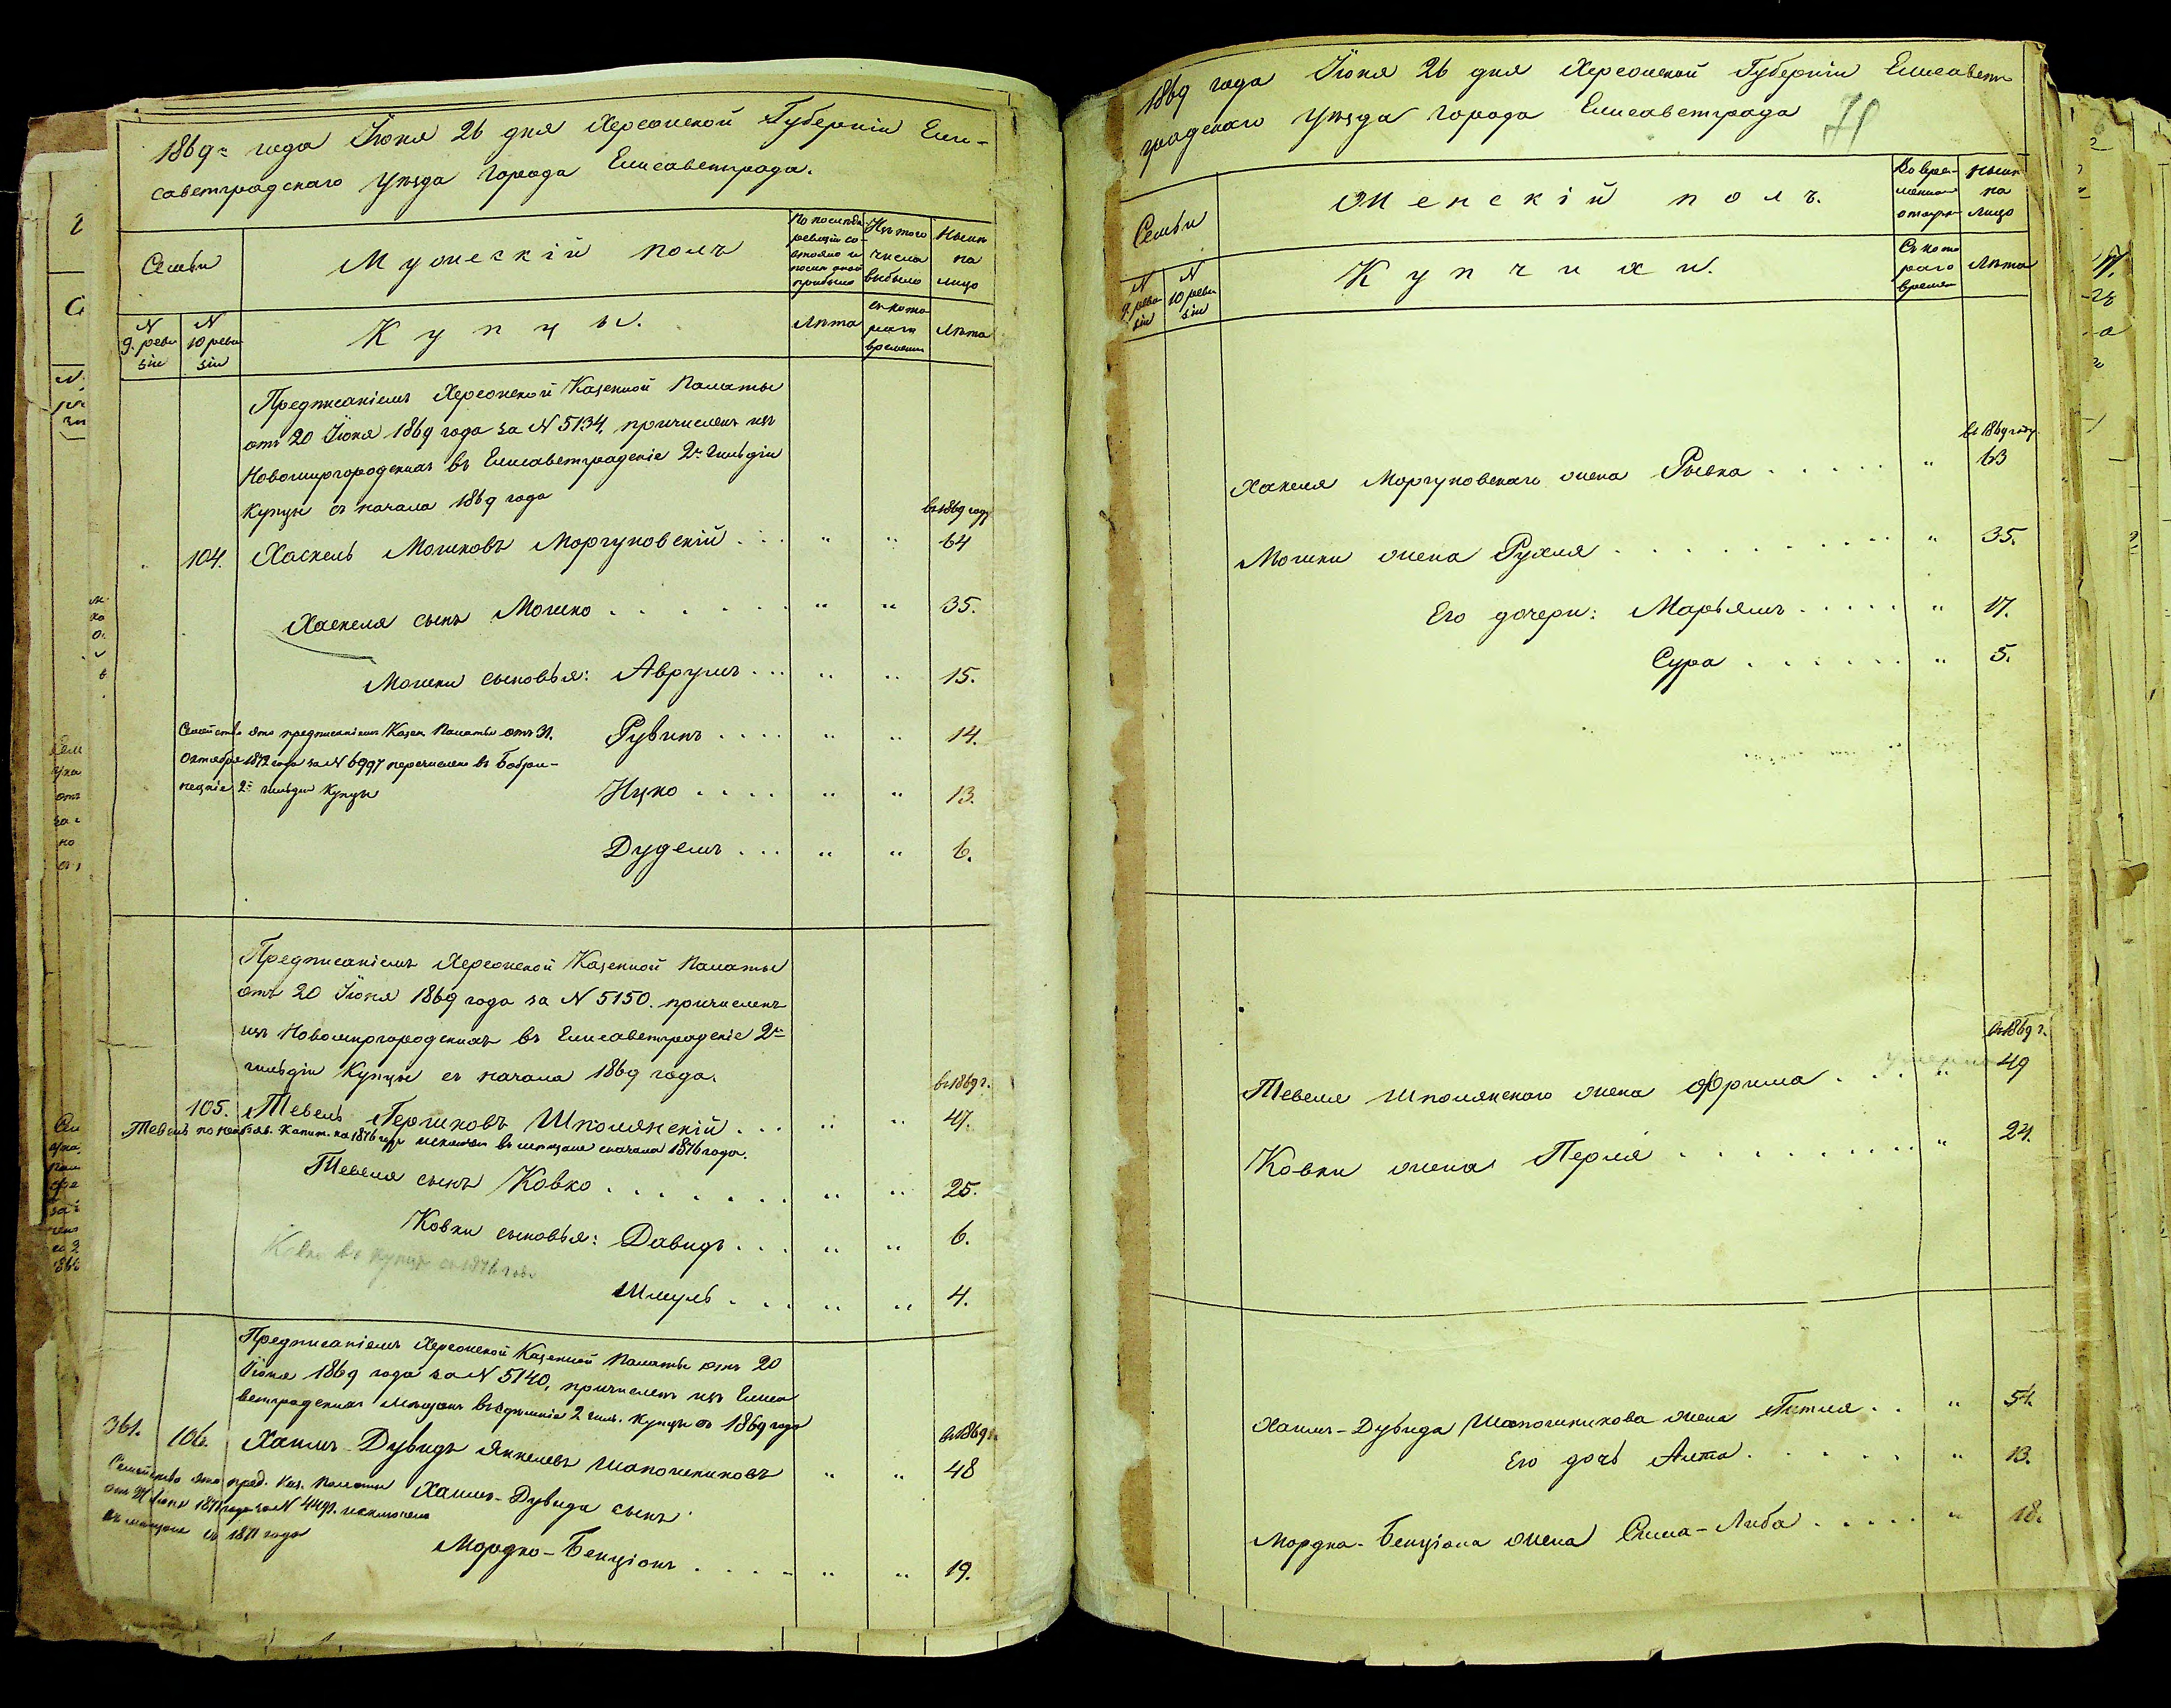 1869го года Іюня 26 дня Херсонской Губерніи Ели-
саветградскаго уѣзда города Елисаветграда.
Семьи
Мужескій полъ
По послѣдн. ревизіи со-
стояло и
послѣ оной
прибыло
Изъ того
числа
выбыло
Нынѣ
на
лицо
N
9. реви
зіи
N
10 реви
зіи
Купцы.
Лѣта
съ кото
раго
времени
Лѣта
Предписаніемъ Херсонской Казенной Палаты
отъ 20 Іюня 1869 года за N 5134, причисленъ изъ
Новомиргородскихъ въ Елисаветградскіе 2й гильдіи
Купцы съ начала 1869 года
въ 1869 году
104. Хаскель Мошковъ Моргуновскій . . . " " 64
Хаскеля сынъ Мошко . . . . . . " " 35.
Мошки сыновья: Аврумъ . . . " " 15.
Рувинъ . . . . " " 14.
Ицко . . . . " " 13.
Дудель . . . " " 6.
Семейство это предписаніемъ Казен. Палаты отъ 31.
Октября 1872 года за N 6997 перечислено въ Бобри-
нецкіе 2й гильдіи Купцы
Предписаніемъ Херсонской Казенной Палаты
отъ 20 Іюня 1869 года за N 5150. причисленъ
изъ Новомиргородскихъ въ Елисаветградскіе 2й
гильдіи Купцы съ начала 1869 года.
въ 1869 г.
105. Тевель Гершковъ Шполянскій . . . " " 47.
Тевель по необъяв. Капит. на 1876 годъ исключен въ мещане сначала 1876 года.
Тевеля сынъ Ковко . . . . . . . " " 25.
Ковки сыновья: Давидъ . . . " " 6.
Ковко въ купцы съ 1876 года
Шмуль . . . " " 4.
Предписаніемъ Херсонской Казенной Палаты отъ 20
Іюня 1869 года за N 5140, причисленъ изъ Елиса
ветградскихъ Мѣщанъ въ здѣшніе 2 гил. Купцы съ 1869 года
въ 1869 г.
361. 106. Хаимъ-Дувидъ Янкелевъ Шапошниковъ " " 48
Семейство это пред. Каз. Палаты
отъ Іюня 1871 года за N 4491. исключено
въ мещане съ 1871 года
Хаимъ-Дувида сынъ
Мордко-Бенціонъ . . . . " " 19.
1869 года Іюня 26 дня Херсонской Губерніи Елисавет
градскаго уѣзда города Елисаветграда
71
Семьи
Женскій полъ.
Во вре-
менной
отлуч.
Нынѣ
на
лицо
N
9. реви
зіи
N
10 реви
зіи
Купчихи.
Съ кото
раго
времен
Лѣта
въ 1869 году.
Хаскеля Моргуновскаго жена Рывка . . . . . " 63
Мошки жена Рухля . . . . . . . . . . . " 35.
Его дочери: Марьямъ . . . . . " 17.
Сура . . . . . . " 5.
въ 1869 г.
Тевеля Шполянскаго жена Фрима . . . " 49
умерла
Ковки жена Перля . . . . . . . . . " 24.
Хаимъ-Дувида Шапошникова жена Гитля . . " 51.
Его дочь Алта . . . . . . " 13.
Мордка-Бенціона жена Слима-Либа . . . . . " 18.